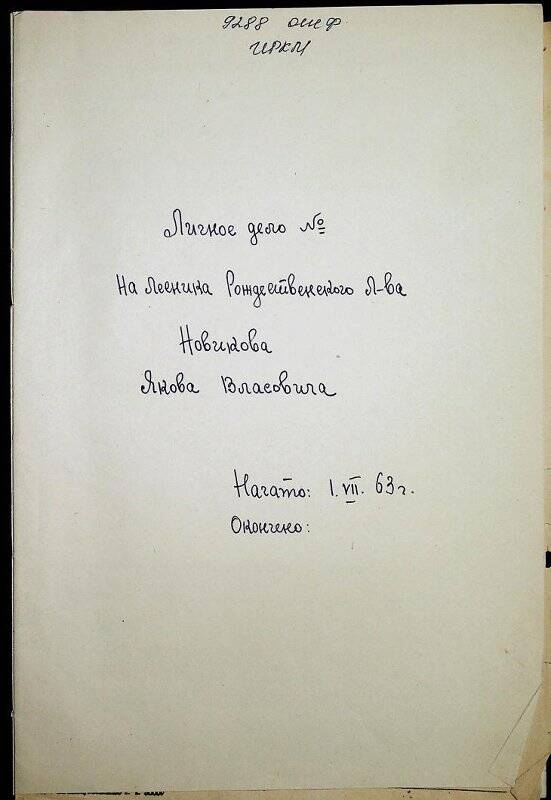 9288 онф
ИРКМ
Личное дело №
На лесника Рождественского л-ва
Новикова
Якова Власовича
Начато: 1.VII. 63 г.
Окончено: